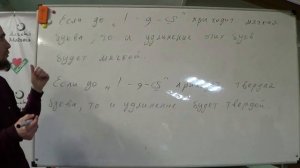 Если до " ا - و - ي " приходит мягкая
буква, то и удлинение этих букв
будет мягкой.
Если до " ا - و - ي " приходит твёрдая
буква, то и удлинение будет твёрдой